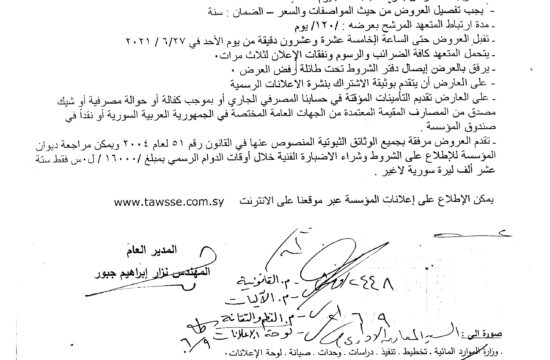 - يجب تفصيل العروض من حيث المواصفات والسعر – الضمان : سنة
- مدة ارتباط المتعهد المرشح بعرضه : /١٢٠/ يوم
- تقبل العروض حتى الساعة الخامسة عشرة وعشرون دقيقة من يوم الأحد في ٦/٢٧ / ٢٠٢١
- يتحمل المتعهد كافة الضرائب والرسوم ونفقات الإعلان لثلاث مرات.
- يرفق بالعرض إيصال دفتر الشروط تحت طائلة رفض العرض .
- على العارض أن يتقدم بوثيقة الاشتراك بنشرة الاعلانات الرسمية
- على العارض تقديم التأمينات المؤقتة في حسابنا المصرفي الجاري أو بموجب كفالة أو حوالة مصرفية أو شيك
مصدق من المصارف المقيمة المعتمدة من الجهات العامة المختصة في الجمهورية العربية السورية أو نقداً في
صندوق المؤسسة .
- تقدم العروض مرفقة بجميع الوثائق الثبوتية المنصوص عنها في القانون رقم ٥١ لعام ٢٠٠٤ ويمكن مراجعة ديوان
المؤسسة للإطلاع على الشروط وشراء الاضبارة الفنية خلال أوقات الدوام الرسمي بمبلغ /١٦٠٠٠ / ل.س فقط ستة
عشر ألف ليرة سورية لاغير .
يمكن الإطلاع على إعلانات المؤسسة عبر موقعنا على الانترنت www.tawsse.com.sy
المدير العام
المهندس نزار إبراهيم جبور
٢٤٤٨
- م. القانونية
- م. الآليات
- م. النظم والتقانة
- لوحة الإعلانات
٦/٩
صورة الى :
- وزارة الموارد المائية . تخطيط . تنفيذ . دراسات . وحدات . صيانة . لوحة الإعلانات.